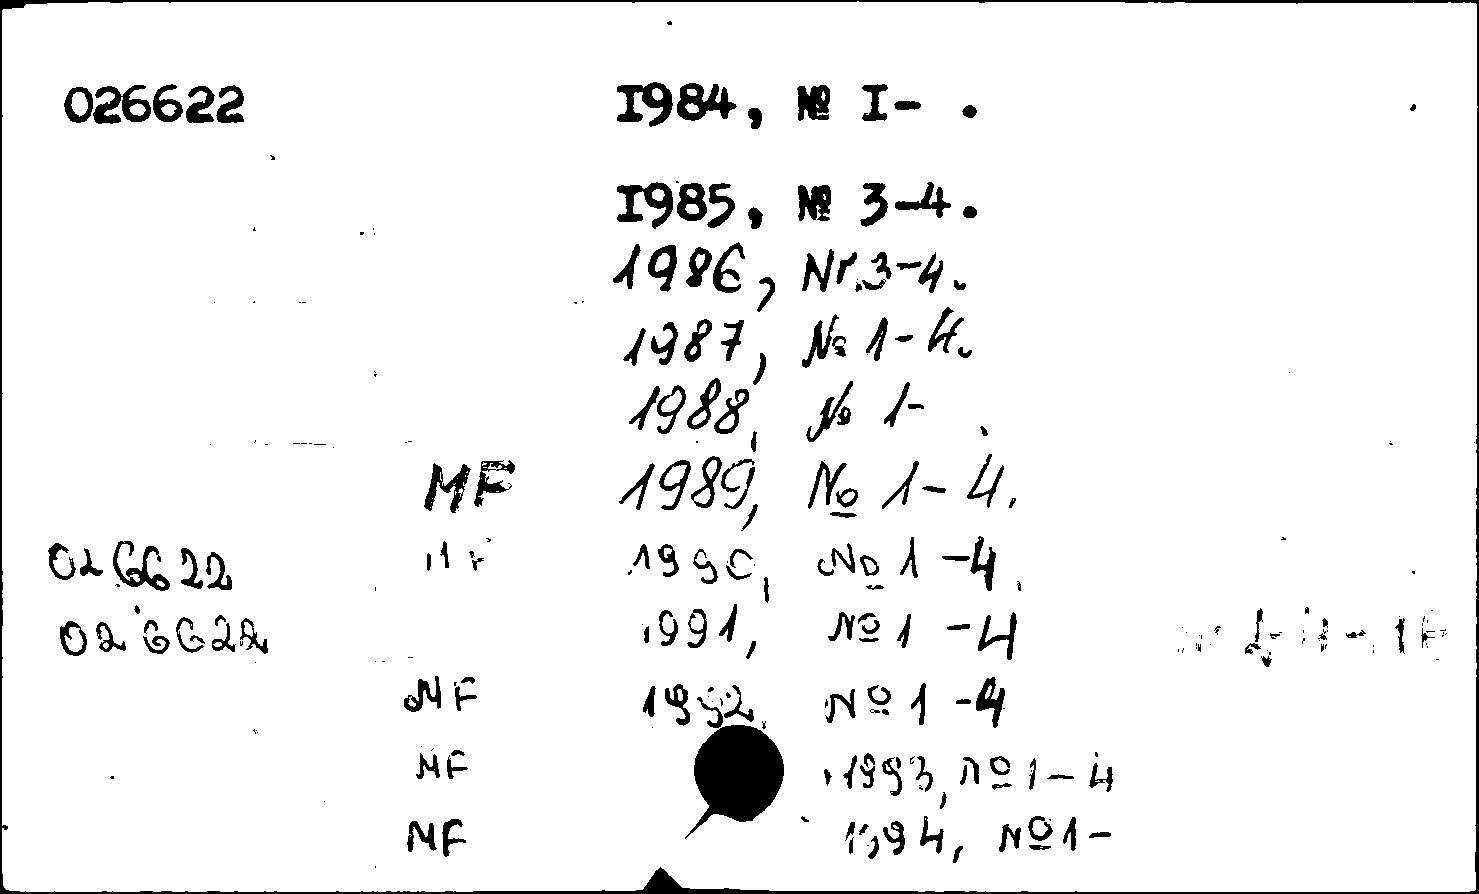 026622 I984, № I- .
I985, № 3-4.
1986, Nr.3-4.
1987, № 1-4.
1988, № 1- .
MF 1989, № 1-4.
026622 MF 1990, № 1-4.
026622 1991, № 1-4
MF 1992, № 1-4
MF 1993, № 1-4
MF 1994, № 1-